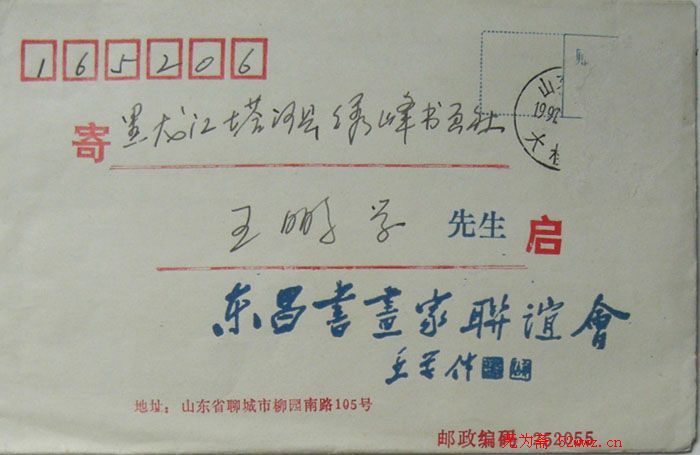 165206
寄 黑龙江塔河县绣峰书画社
王鹏学 先生 启
东昌書畫家聯誼會
地址：山东省聊城市柳园南路105号
邮政编码 252055
52wwz.cn